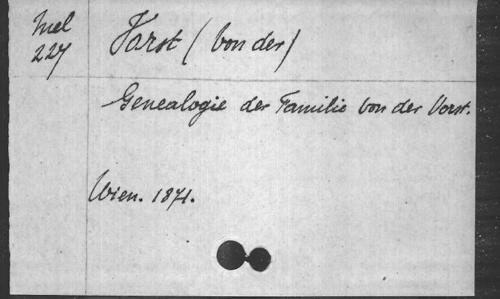 Mel
227
Varst (von der)
Genealogie der Familie von der Vorst.
Wien. 1871.